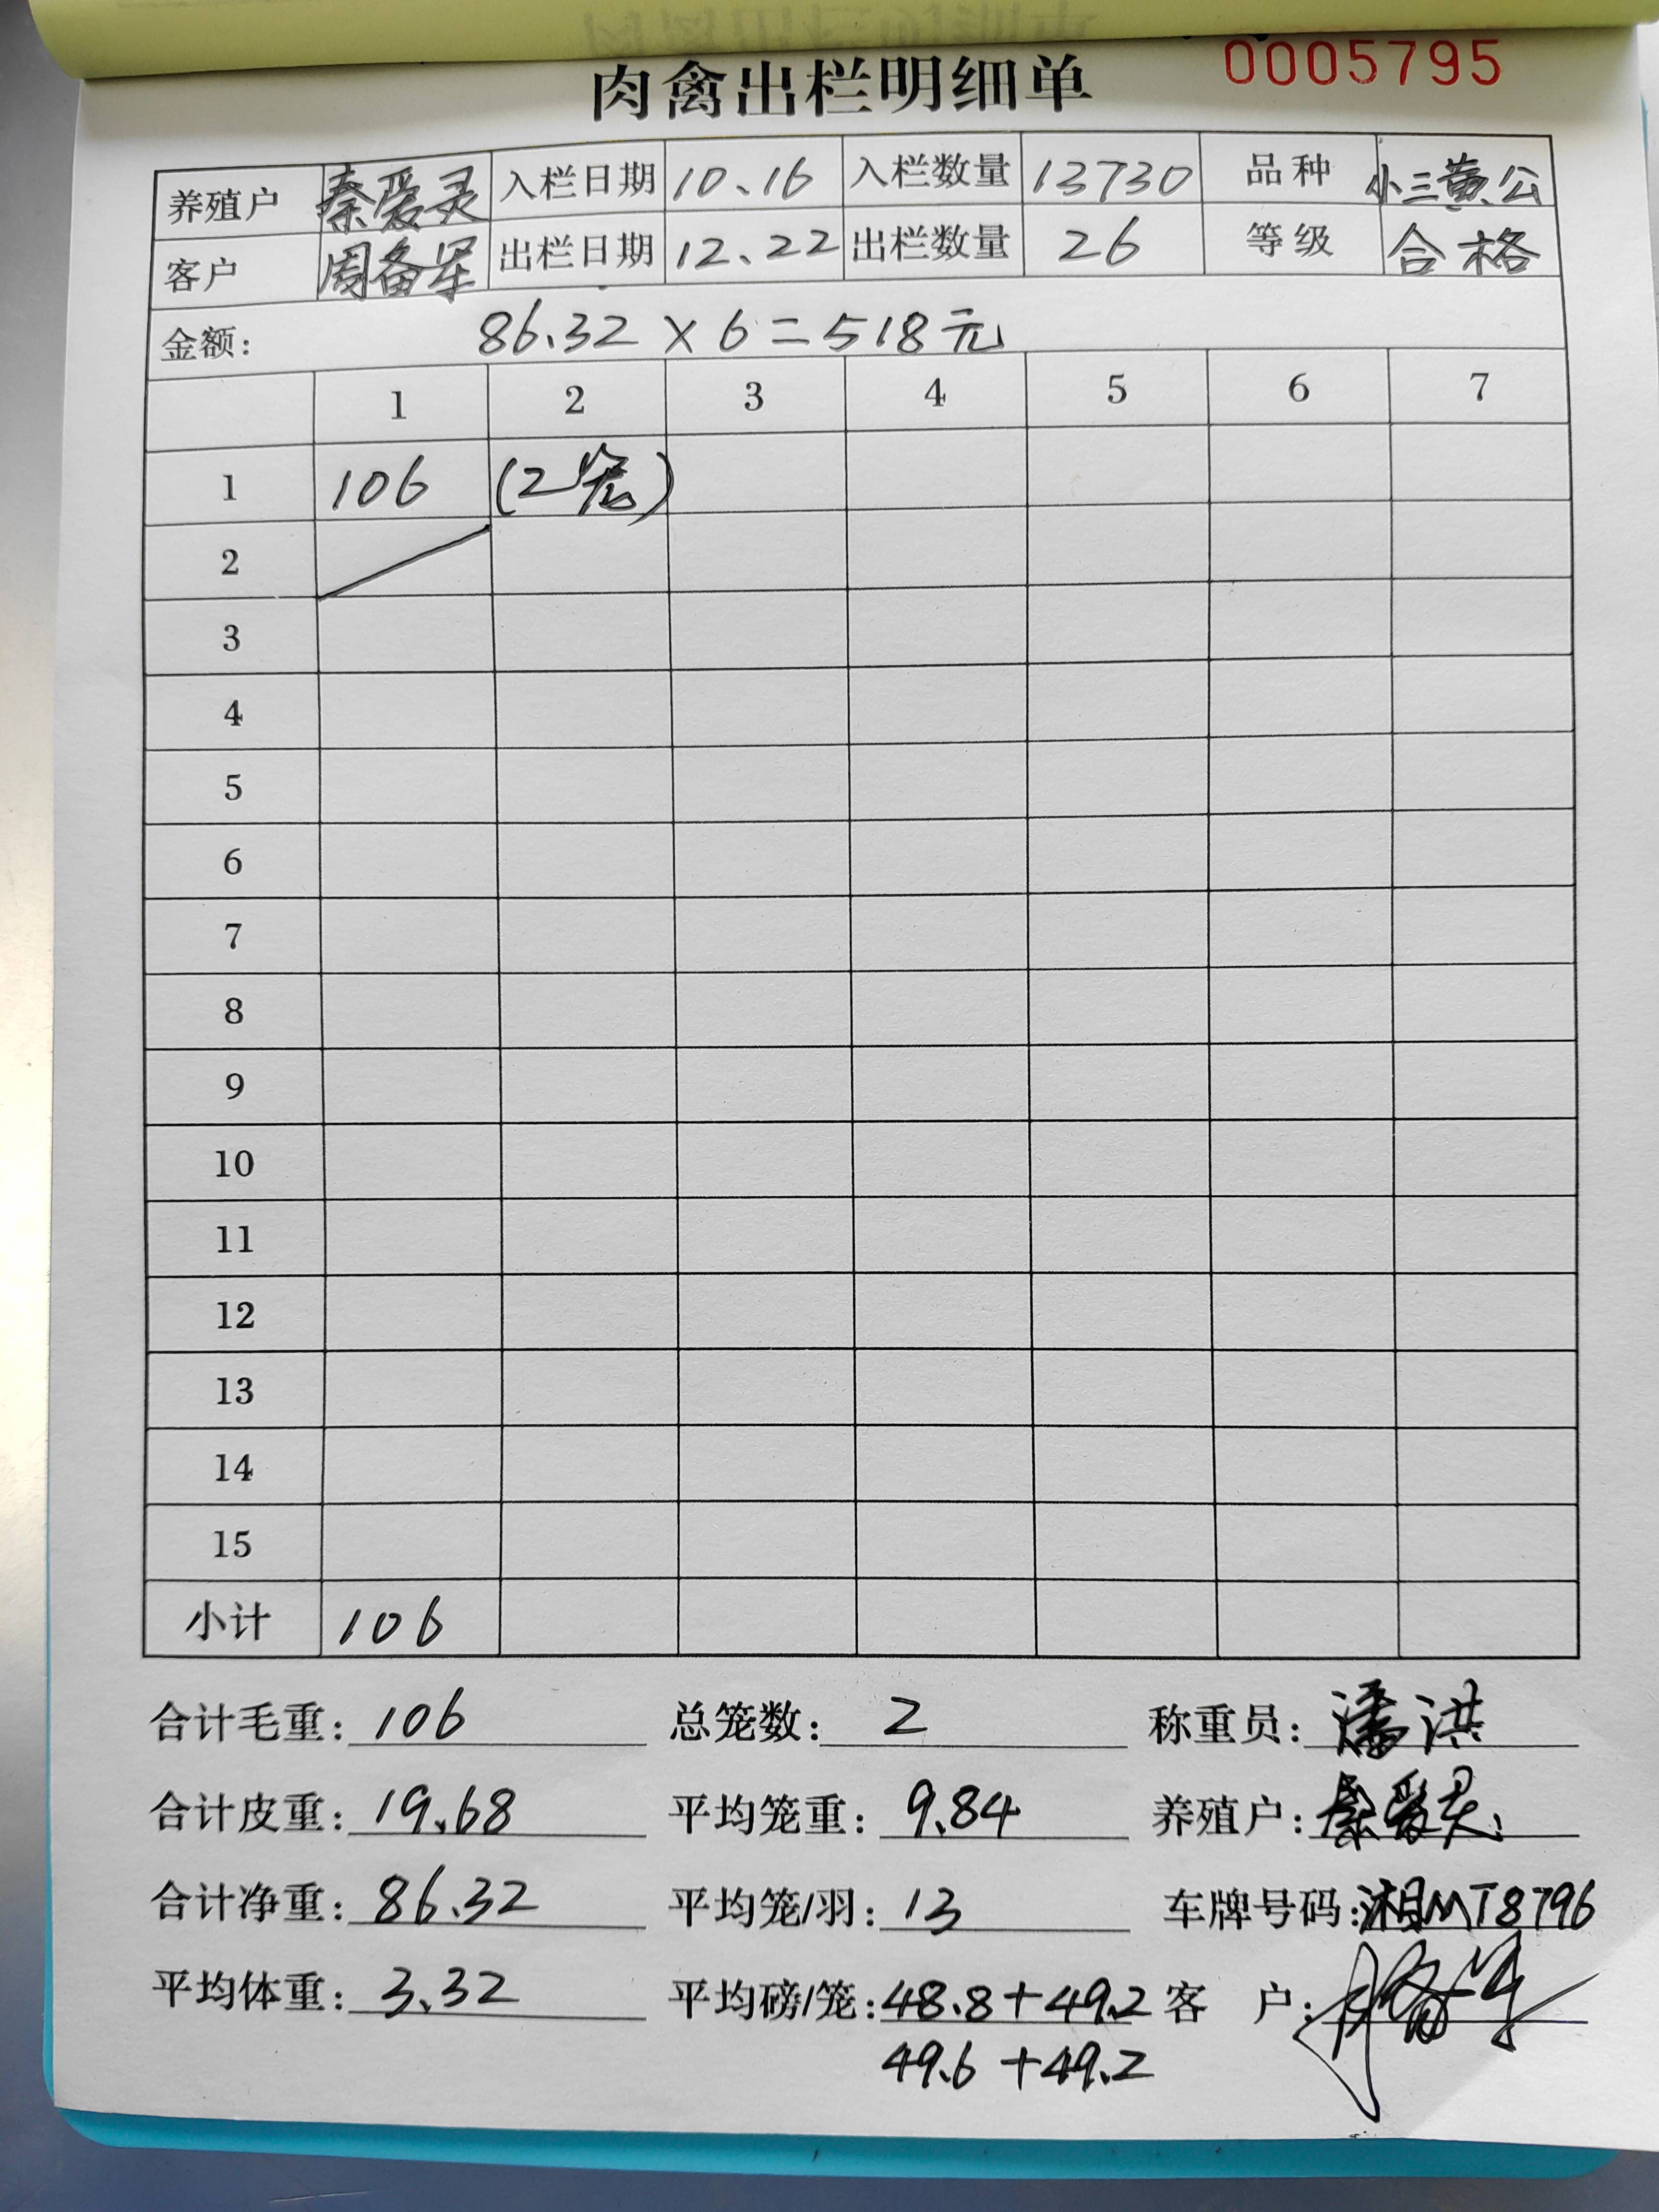 0005795
肉禽出栏明细单
养殖户 秦爱灵 入栏日期 10.16 入栏数量 13730 品种 小三黄公
客户 周备军 出栏日期 12.22 出栏数量 26 等级 合格
金额: 86.32 × 6 = 518元
1 2 3 4 5 6 7
1 106 (2笼)
2
3
4
5
6
7
8
9
10
11
12
13
14
15
小计 106
合计毛重: 106 总笼数: 2 称重员: 潘洪
合计皮重: 19.68 平均笼重: 9.84 养殖户: 秦爱灵
合计净重: 86.32 平均笼/羽: 13 车牌号码: 湘MT8796
平均体重: 3.32 平均磅/笼: 48.8+49.2 客 户:
49.6+49.2